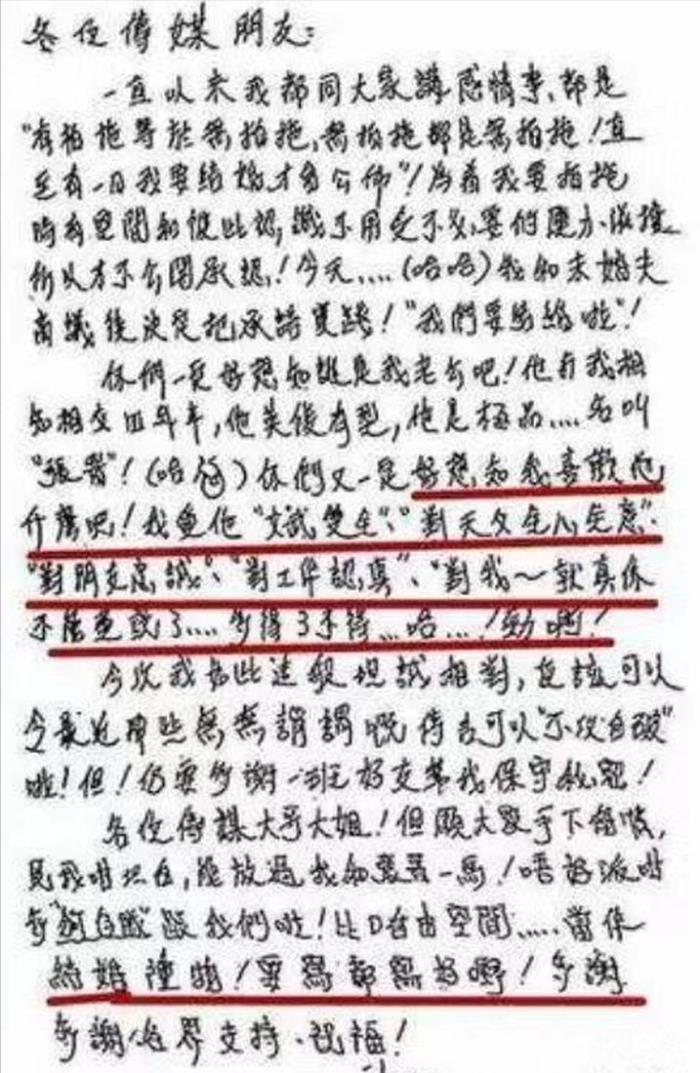 各位傳媒朋友：
一直以來我都同大家講感情事，都是
"有拍拖等於無拍拖，無拍拖都是無拍拖！直
至有一日我要結婚才會公佈"！為着我要拍拖
時有空間和彼此認識不用受不必要的壓力
所以才不公開承認！今天....(哈哈)我和未婚夫
商議後決定把承諾實踐！"我們要結婚啦"！
你們一定好想知誰是我老公吧！他和我相
知相交四年半，他英俊有型，他是極品....名叫
"張晉"！(哈哈)你們又一定好想知我喜歡他
什麼吧！我愛他"文武雙全"、"對天父全心全意"、
"對朋友忠誠"、"對工作認真"、"對我～就真係
不能盡説了....多得了不得...哈...！勁啊！
今次我如此這般坦誠相對，應該可以
令最近那些無無謂謂嘅傳言可以"不攻自破"
啦！但！仍要多謝一班好友替我保守秘密！
各位傳謀大哥大姐！但願大家手下留情，
見我咁坦白，請放過我和張晉一馬！唔好派咁
多"狗仔隊"跟我們啦！比D自由空間.....當係
結婚禮物！要寫都寫好嘢！多謝
多謝各界支持、祝福！